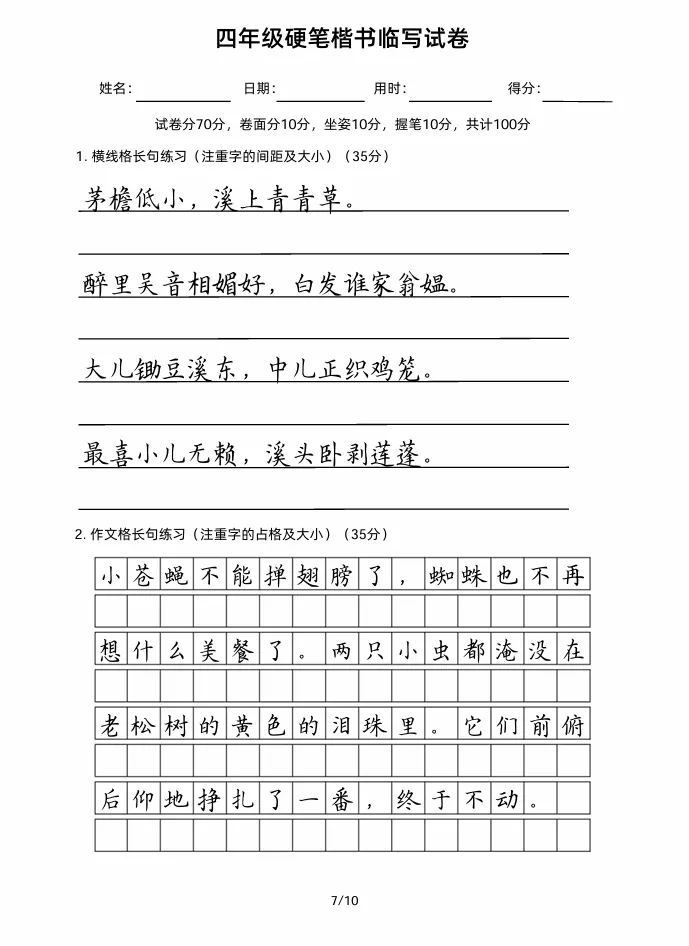 四年级硬笔楷书临写试卷
姓名： 日期： 用时： 得分：
试卷分70分，卷面分10分，坐姿10分，握笔10分，共计100分
1. 横线格长句练习（注重字的间距及大小）（35分）
茅檐低小，溪上青青草。
醉里吴音相媚好，白发谁家翁媪。
大儿锄豆溪东，中儿正织鸡笼。
最喜小儿无赖，溪头卧剥莲蓬。
2. 作文格长句练习（注重字的占格及大小）（35分）
小苍蝇不能掸翅膀了，蜘蛛也不再
想什么美餐了。两只小虫都淹没在
老松树的黄色的泪珠里。它们前俯
后仰地挣扎了一番，终于不动。
7/10